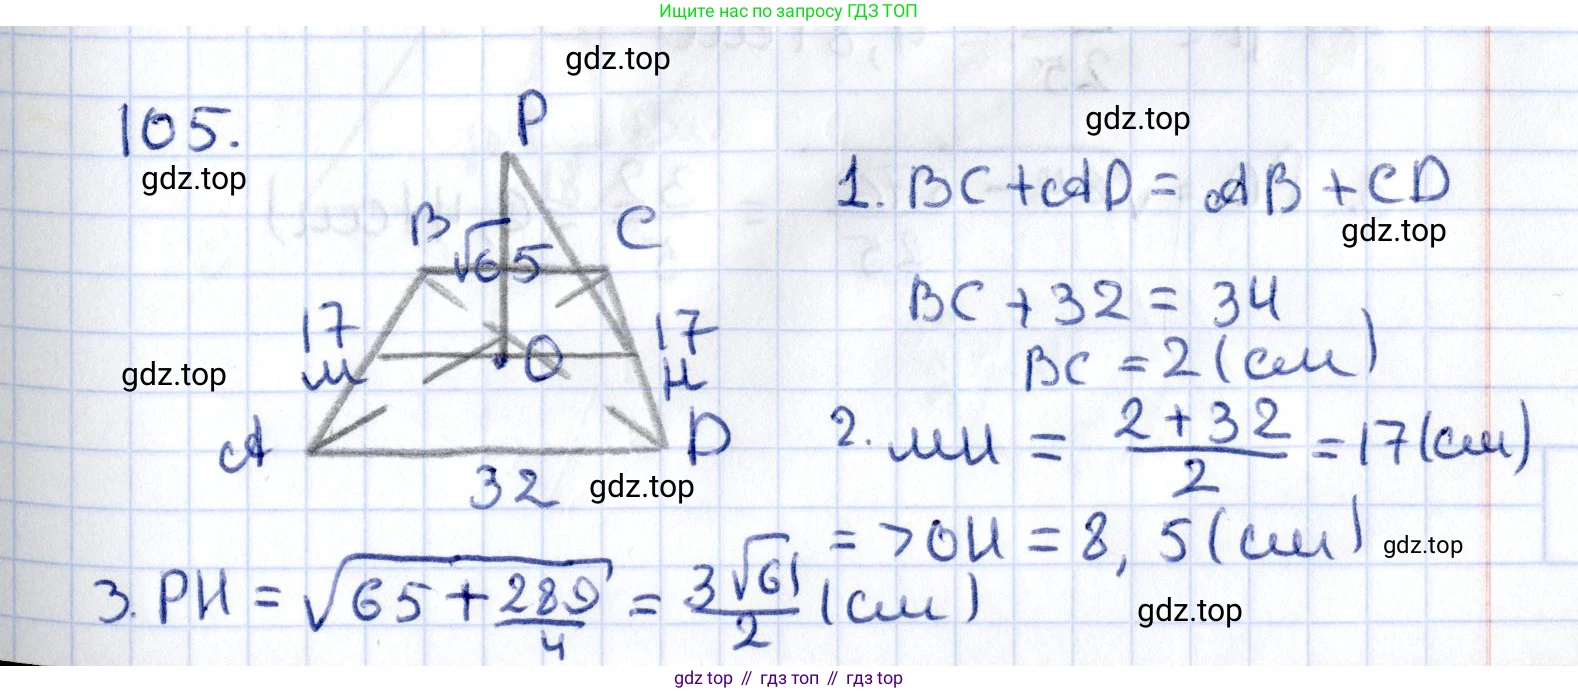 Ищите нас по запросу ГДЗ ТОП
gdz.top
105.
gdz.top
gdz.top
P
B
√65
C
17
17
M
O
H
A
D
32
gdz.top
gdz.top
1. BC + AD = AB + CD
gdz.top
BC + 32 = 34
BC = 2 (см)
2. MH = (2 + 32)/2 = 17 (см)
=> OH = 8,5 (см)
gdz.top
3. PH = √(65 + 289/4) = 3√61/2 (см)
gdz.top
gdz top // гдз топ // гдз top